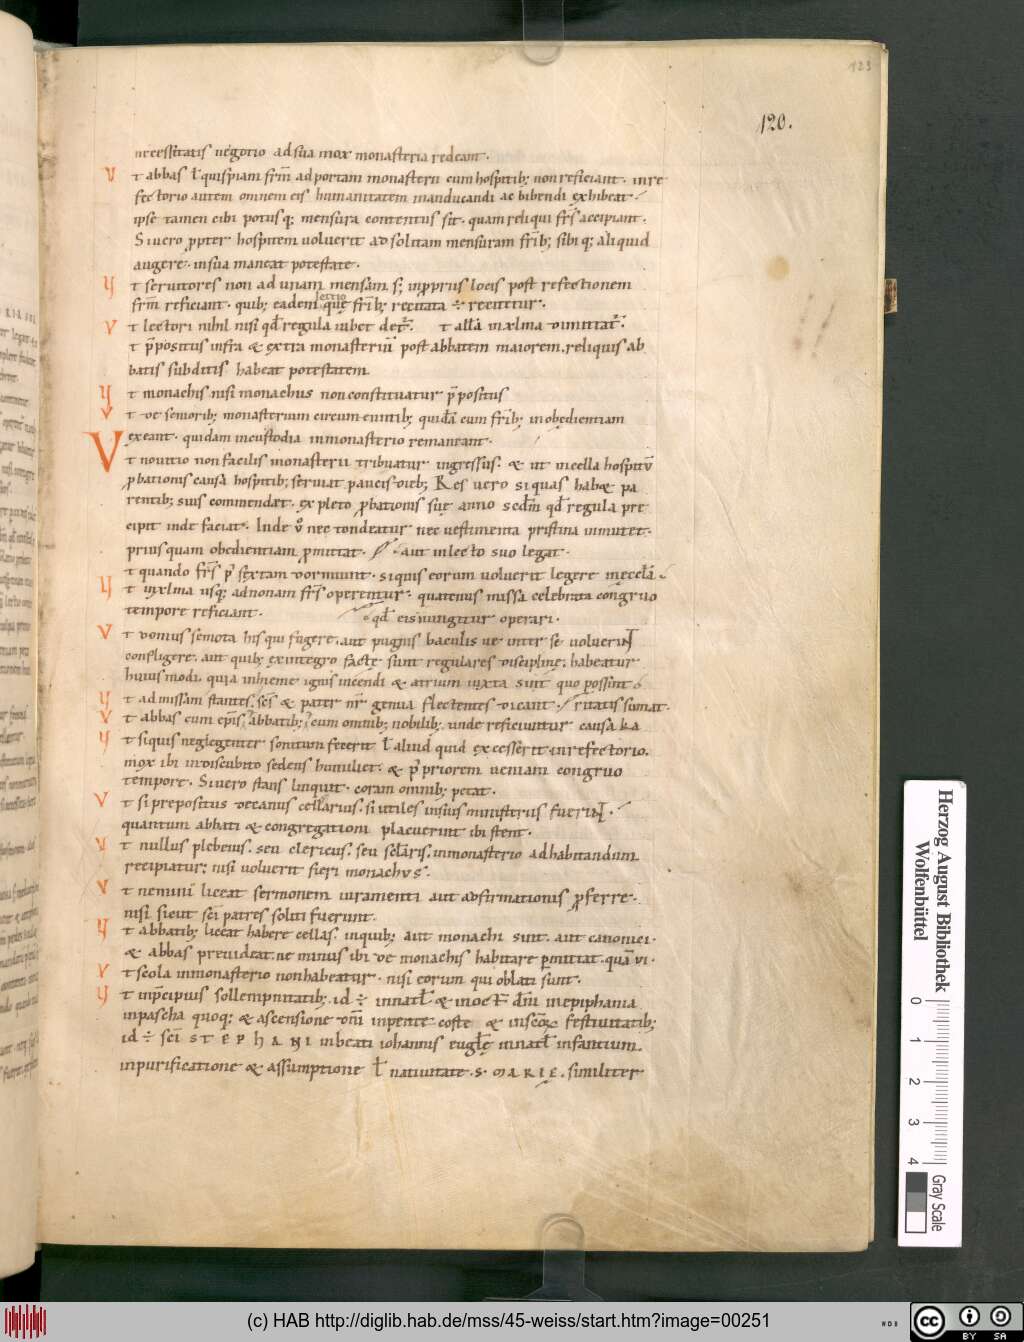 123
120.
necessitatis negotio ad sua mox monasteria redeant.
V t abbas ł quispiam frm̄ ad portam monasterii cum hospitib; non reficiant. in re
fectorio autem omnem eis humanitatem manducandi ac bibendi exhibeat
ipse tamen cibi potusq; mensura contentus sit. quam reliqui frs̄ accipiant.
Si uero ꝓpter hospitem uoluerit ad solitam mensuram frīb; sibiq; aliquid
augere. in sua maneat potestate.
V t seruitores non ad unam mensam. s; in ꝓpriis locis post refectionem
frm̄ reficiant. quib; eadem lectio quę frīb; recitata ÷ recitetur.
V t lectori nihil nisi qd̄ regula iubet det̄. t allā in xlma dimittat̄.
t p̄positus infra & extra monasteriū post abbatem maiorem. reliquis ab
batis subditis habeat potestatem.
V t monachis nisi monachus non constituatur p̄positus
V t de seniorib; monasterium circumeuntib; quidā cum frīb; in obędientiam
exeant. quidam in custodia in monasterio remaneant.
V t nouitio non facilis monasterii tribuatur ingressus. & ut in cella hospitū
ꝓbationis causa hospitib; seruiat paucis dieb; Res uero si quas hab& pa
rentib; suis commendet. expleto ꝓbationis suę anno scdm̄ qd̄ regula pre
cipit inde faciat. Inde ū nec tondeatur nec uestimenta pristina inmutet.
priusquam obedientiam ꝓmittat. aut in lecto suo legat.
t quando frs̄ p̄ sextam dormiunt. si quis eorum uoluerit legere in ęcclā
V t in xlma usq; ad nonam frs̄ operentur. quatenus missa celebrata congruo
tempore reficiant. qd̄ eis iungitur operari.
V t domus semota his qui fugere. aut pugnis baculis ue inter se uoluerint
confligere. aut quib; ex integro factę sunt regulares disciplinę. habeatur
huiusmodi. quia in hieme ignis incendi & atrium iuxta sint quo possint
V t ad missam stantes. sēs & pater nr̄ genua flectentes dicant. ritatis sumat.
V t abbas cum ep̄is. abbatib; cum omnib; nobilib; unde reficiuntur causa ka
V t si quis neglegenter sonitum fecerit ł aliud quid excesserit in refectorio.
mox ibi in discubito sedens humiliet. & p̄ priorem ueniam congruo
tempore. Si uero stans linquit. coram omnib; petat.
V t si prepositus decanus cellarius. si utiles in suis ministeriis fuerint.
quantum abbati & congregationi placuerint ibi stent.
V t nullus plebeius. seu clericus. seu sclāris. in monasterio ad habitandum
recipiatur; nisi uoluerit fieri monachus.
V t nemini liceat sermonem iuramenti aut adfirmationis ꝓferre.
nisi sicut sc̄i patres soliti fuerunt.
V t abbatib; liceat habere cellas. in quib; aut monachi sint. aut canonici.
& abbas preuideat. ne minus ibi de monachis habitare ꝑmittat. quā vi.
V t scola in monasterio non habeatur. nisi eorum qui oblati sunt.
V t in p̄cipuis sollempnitatib; id ÷ in natł & in oct̄ dn̄i in epiphania
in pascha quoq; & ascensione dn̄i in pentecoste & in sc̄orꝝ festiuitatib;
id ÷ sc̄i STEPHANI in beati iohannis euglę̄ in natł infantium.
in purificatione & assumptione ł natiuitate. S. MARIĘ. similiter
Herzog August Bibliothek
Wolfenbüttel
0 1 2 3 4
Gray Scale
(c) HAB http://diglib.hab.de/mss/45-weiss/start.htm?image=00251
WDB
CC BY SA